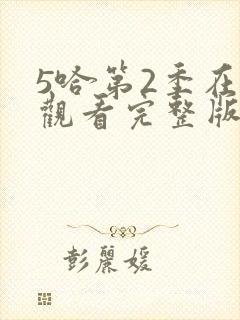 5哈第2季在
觀看完整版
彭麗媛